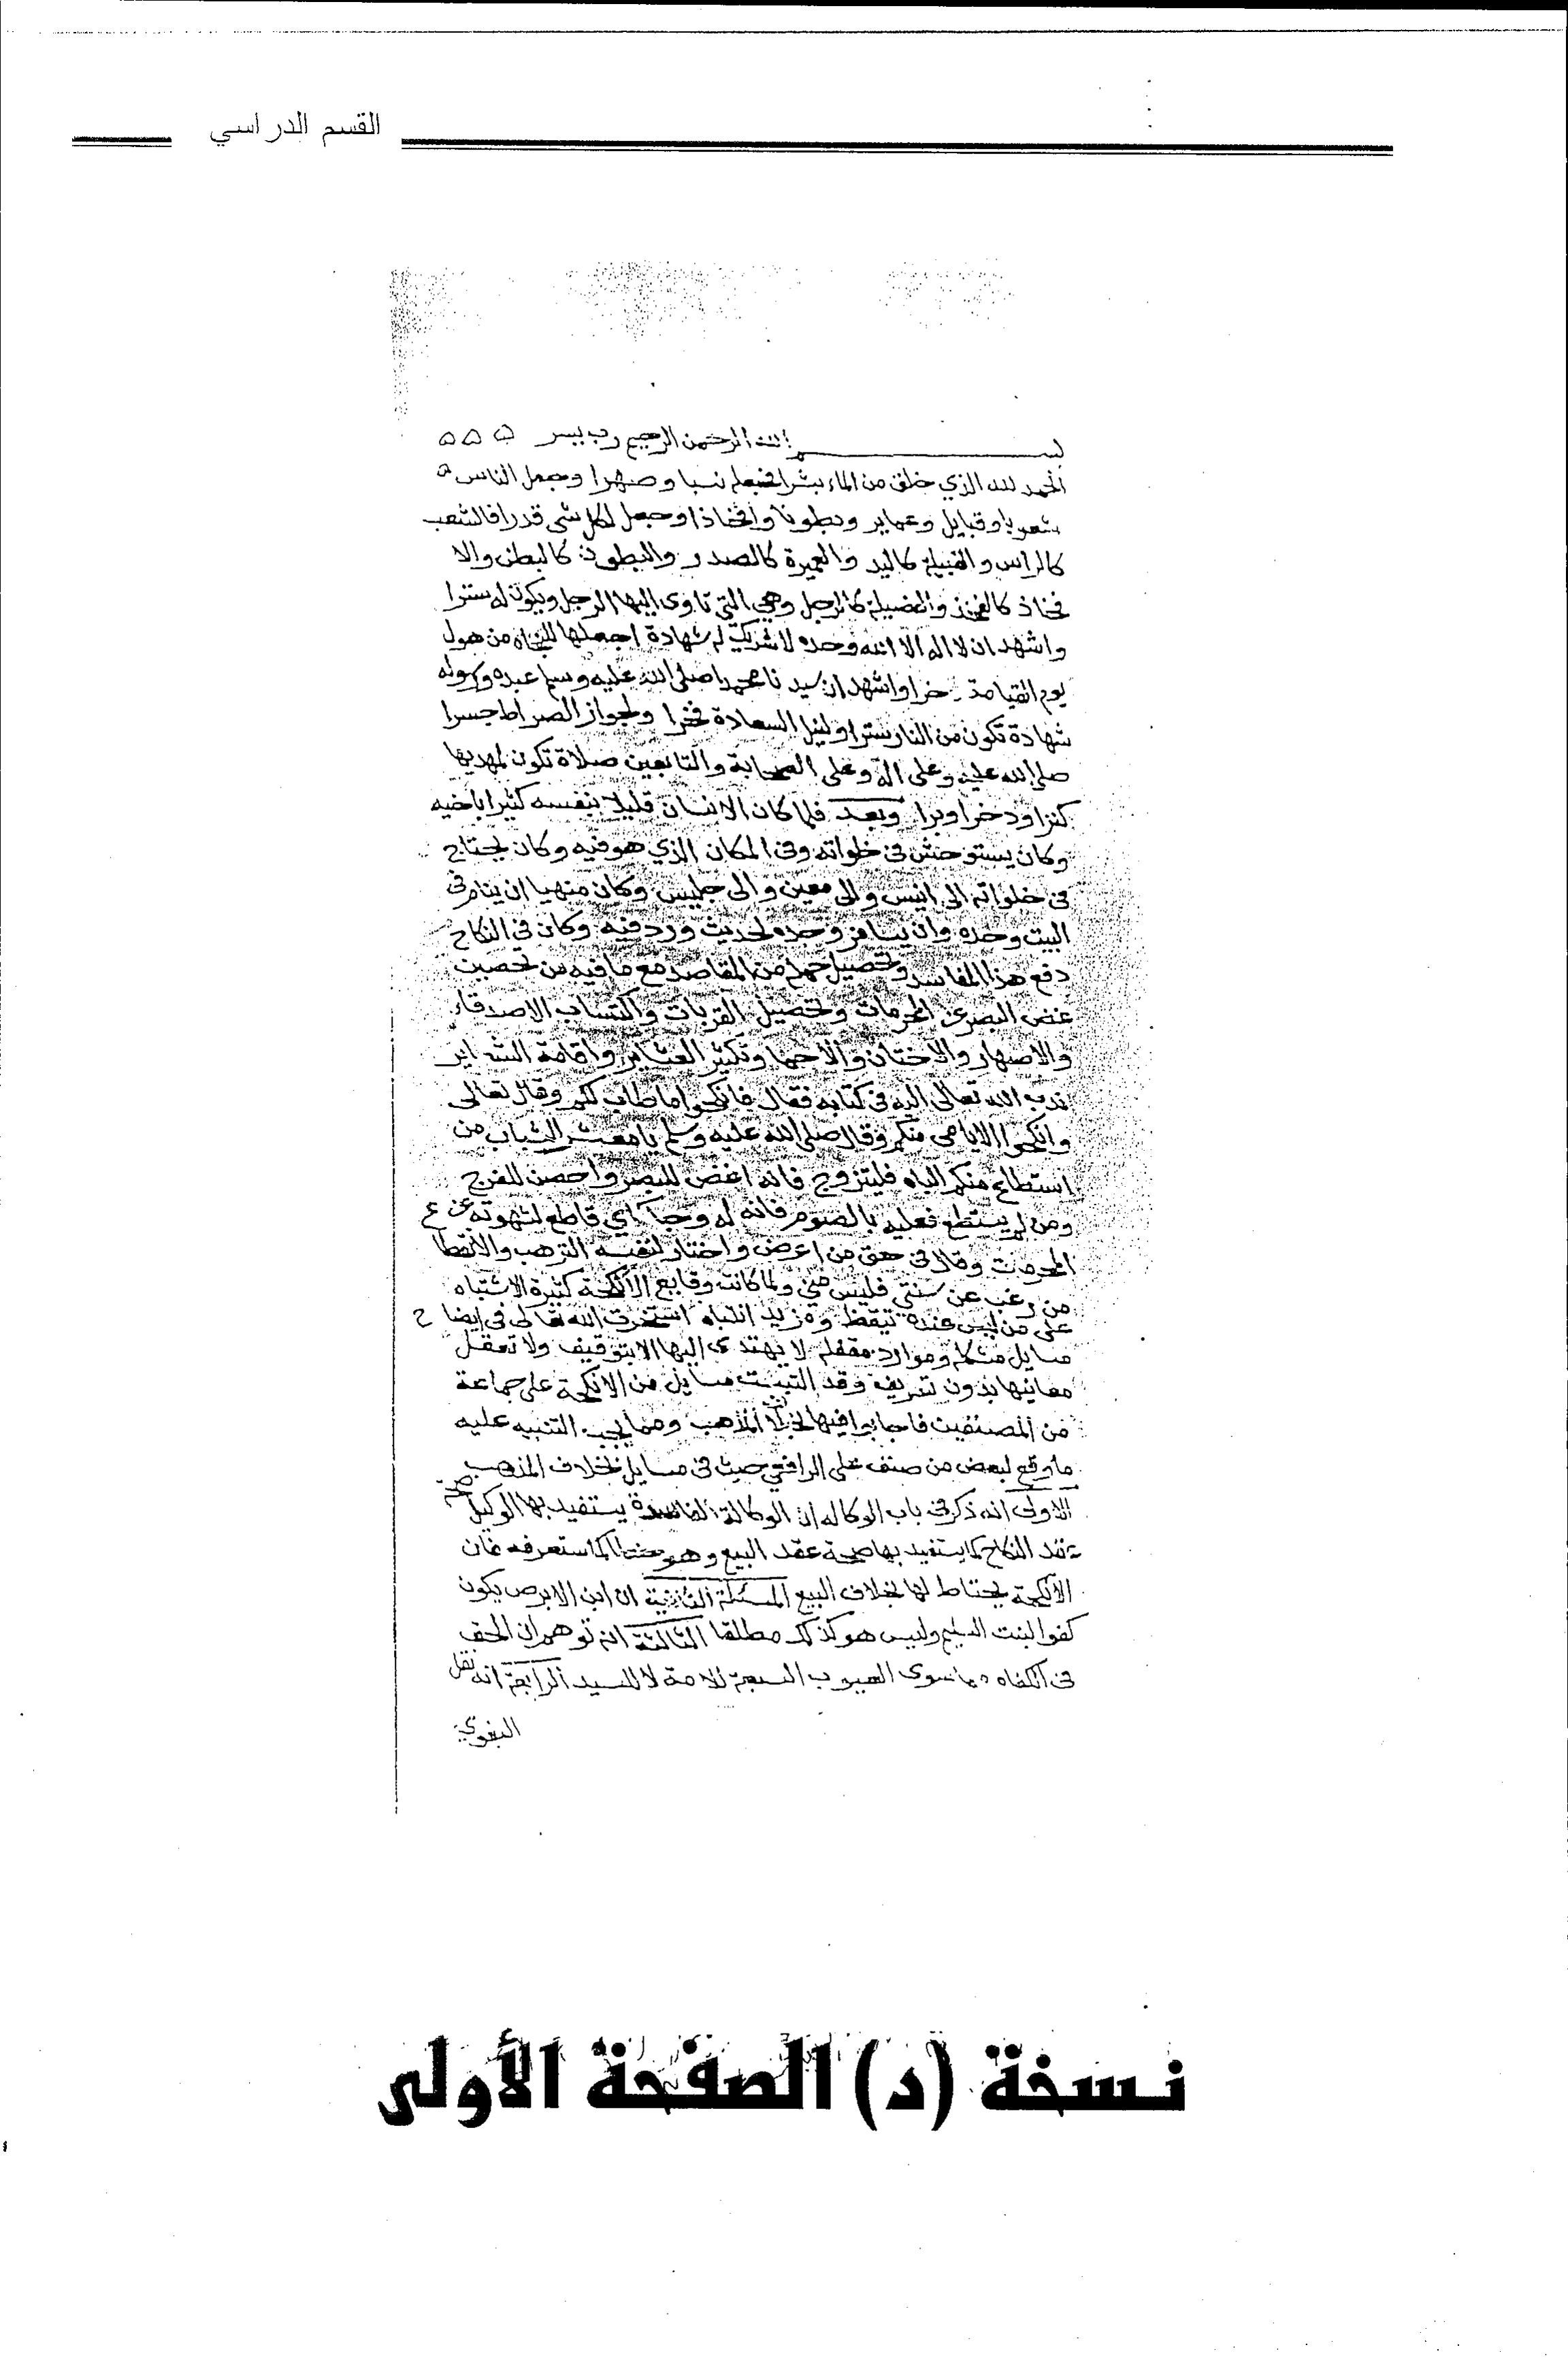 القسم الدراسي
بسم الله الرحمن الرحيم رب يسر ٥ ٥ ٥
الحمد لله الذي خلق من الماء بشرا فجعله نسبا وصهرا وجعل الناس ٥
شعوبا وقبايل وعماير وبطونا وافخاذا وجعل لكل شى قدرا فالشعب
كالراس والقبيلة كاليد والعميرة كالصدر والبطون كالبطن والا
فخاذ كالفخذ والفضيلة كالرجل وهي التي تاوى اليها الرجل ويكون له سترا
واشهد ان لا اله الا الله وحده لا شريك له شهادة اجعلها للنجاة من هول
يوم القيامة ذخرا واشهد ان سيدنا محمدا صلى الله عليه وسلم عبده ورسوله
شهادة تكون من النار سترا ولنيل السعادة فخرا ولجواز الصراط جسرا
صلى الله عليه وعلى اله وعلى الصحابة والتابعين صلاة تكون لمهديها
كنزا وذخرا وبرا وبعد فلما كان الانسان قليلا بنفسه كثيرا باخيه
وكان يستوحش فى خلواته وفى المكان الذي هو فيه وكان يحتاج
فى خلواته الى انيس والى معين والى جليس وكان منهيا ان ينام فى
البيت وحده وان يسافر وحده لحديث ورد فيه وكان في النكاح
دفع هذا المفاسد وتحصيل جملة من المقاصد مع ما فيه من تحصين
غض البصر عن المحرمات وتحصيل القربات واكتساب الاصدقاء
والاصهار والاختان والاحما وتكثير العشاير واقامة الشعاير
ندب الله تعالى اليه فى كتابه فقال فانكحوا ما طاب لكم وقال تعالى
وانكحوا الايامى منكم وقال صلى الله عليه وسلم يا معشر الشباب من
استطاع منكم الباه فليتزوج فانه اغض للبصر واحصن للفرج
ومن لم يستطع فعليه بالصوم فانه له وجآ اي قاطع لشهوته عن ع
المحرمات وقال فى حق من اعرض واختار لنفسه الترهب والانقطا
من رغب عن سنتي فليس مني ولما كانت وقايع الانكحة كثيرة الاشتباه
على من ليس عنده تيقظ ومزيد انتباه استخرت الله تعالى فى ايضا ح
مسايل مشكلة وموارد مقفلة لا يهتدى اليها الا بتوقيف ولا تعقل
معانيها بدون تعريف وقد التبست مسايل من الانكحة على جماعة
من المصنفين فاجابوا فيها بخلاف المذهب ومما يجب التنبيه عليه
ما وقع لبعض من صنف على الرافعي حيث فى مسايل بخلاف المذهب
الاولى انه ذكر فى باب الوكاله ان الوكالة الفاسدة يستفيد بها الوكيل صحة
عقد النكاح كما يستفيد بها صحة عقد البيع وهو خطا كما ستعرفه فان
الانكحة يحتاط لها بخلاف البيع المسئلة الثانية ان ابن الابرص يكون
كفوا لبنت السليم وليس هو كذلك مطلقا الثالثة انه توهم ان الحق
فى الكفاه فيما سوى العيوب السبعة للامة لا للسيد الرابعة انه نقل
البغوي
نسخة (د) الصفحة الأولى